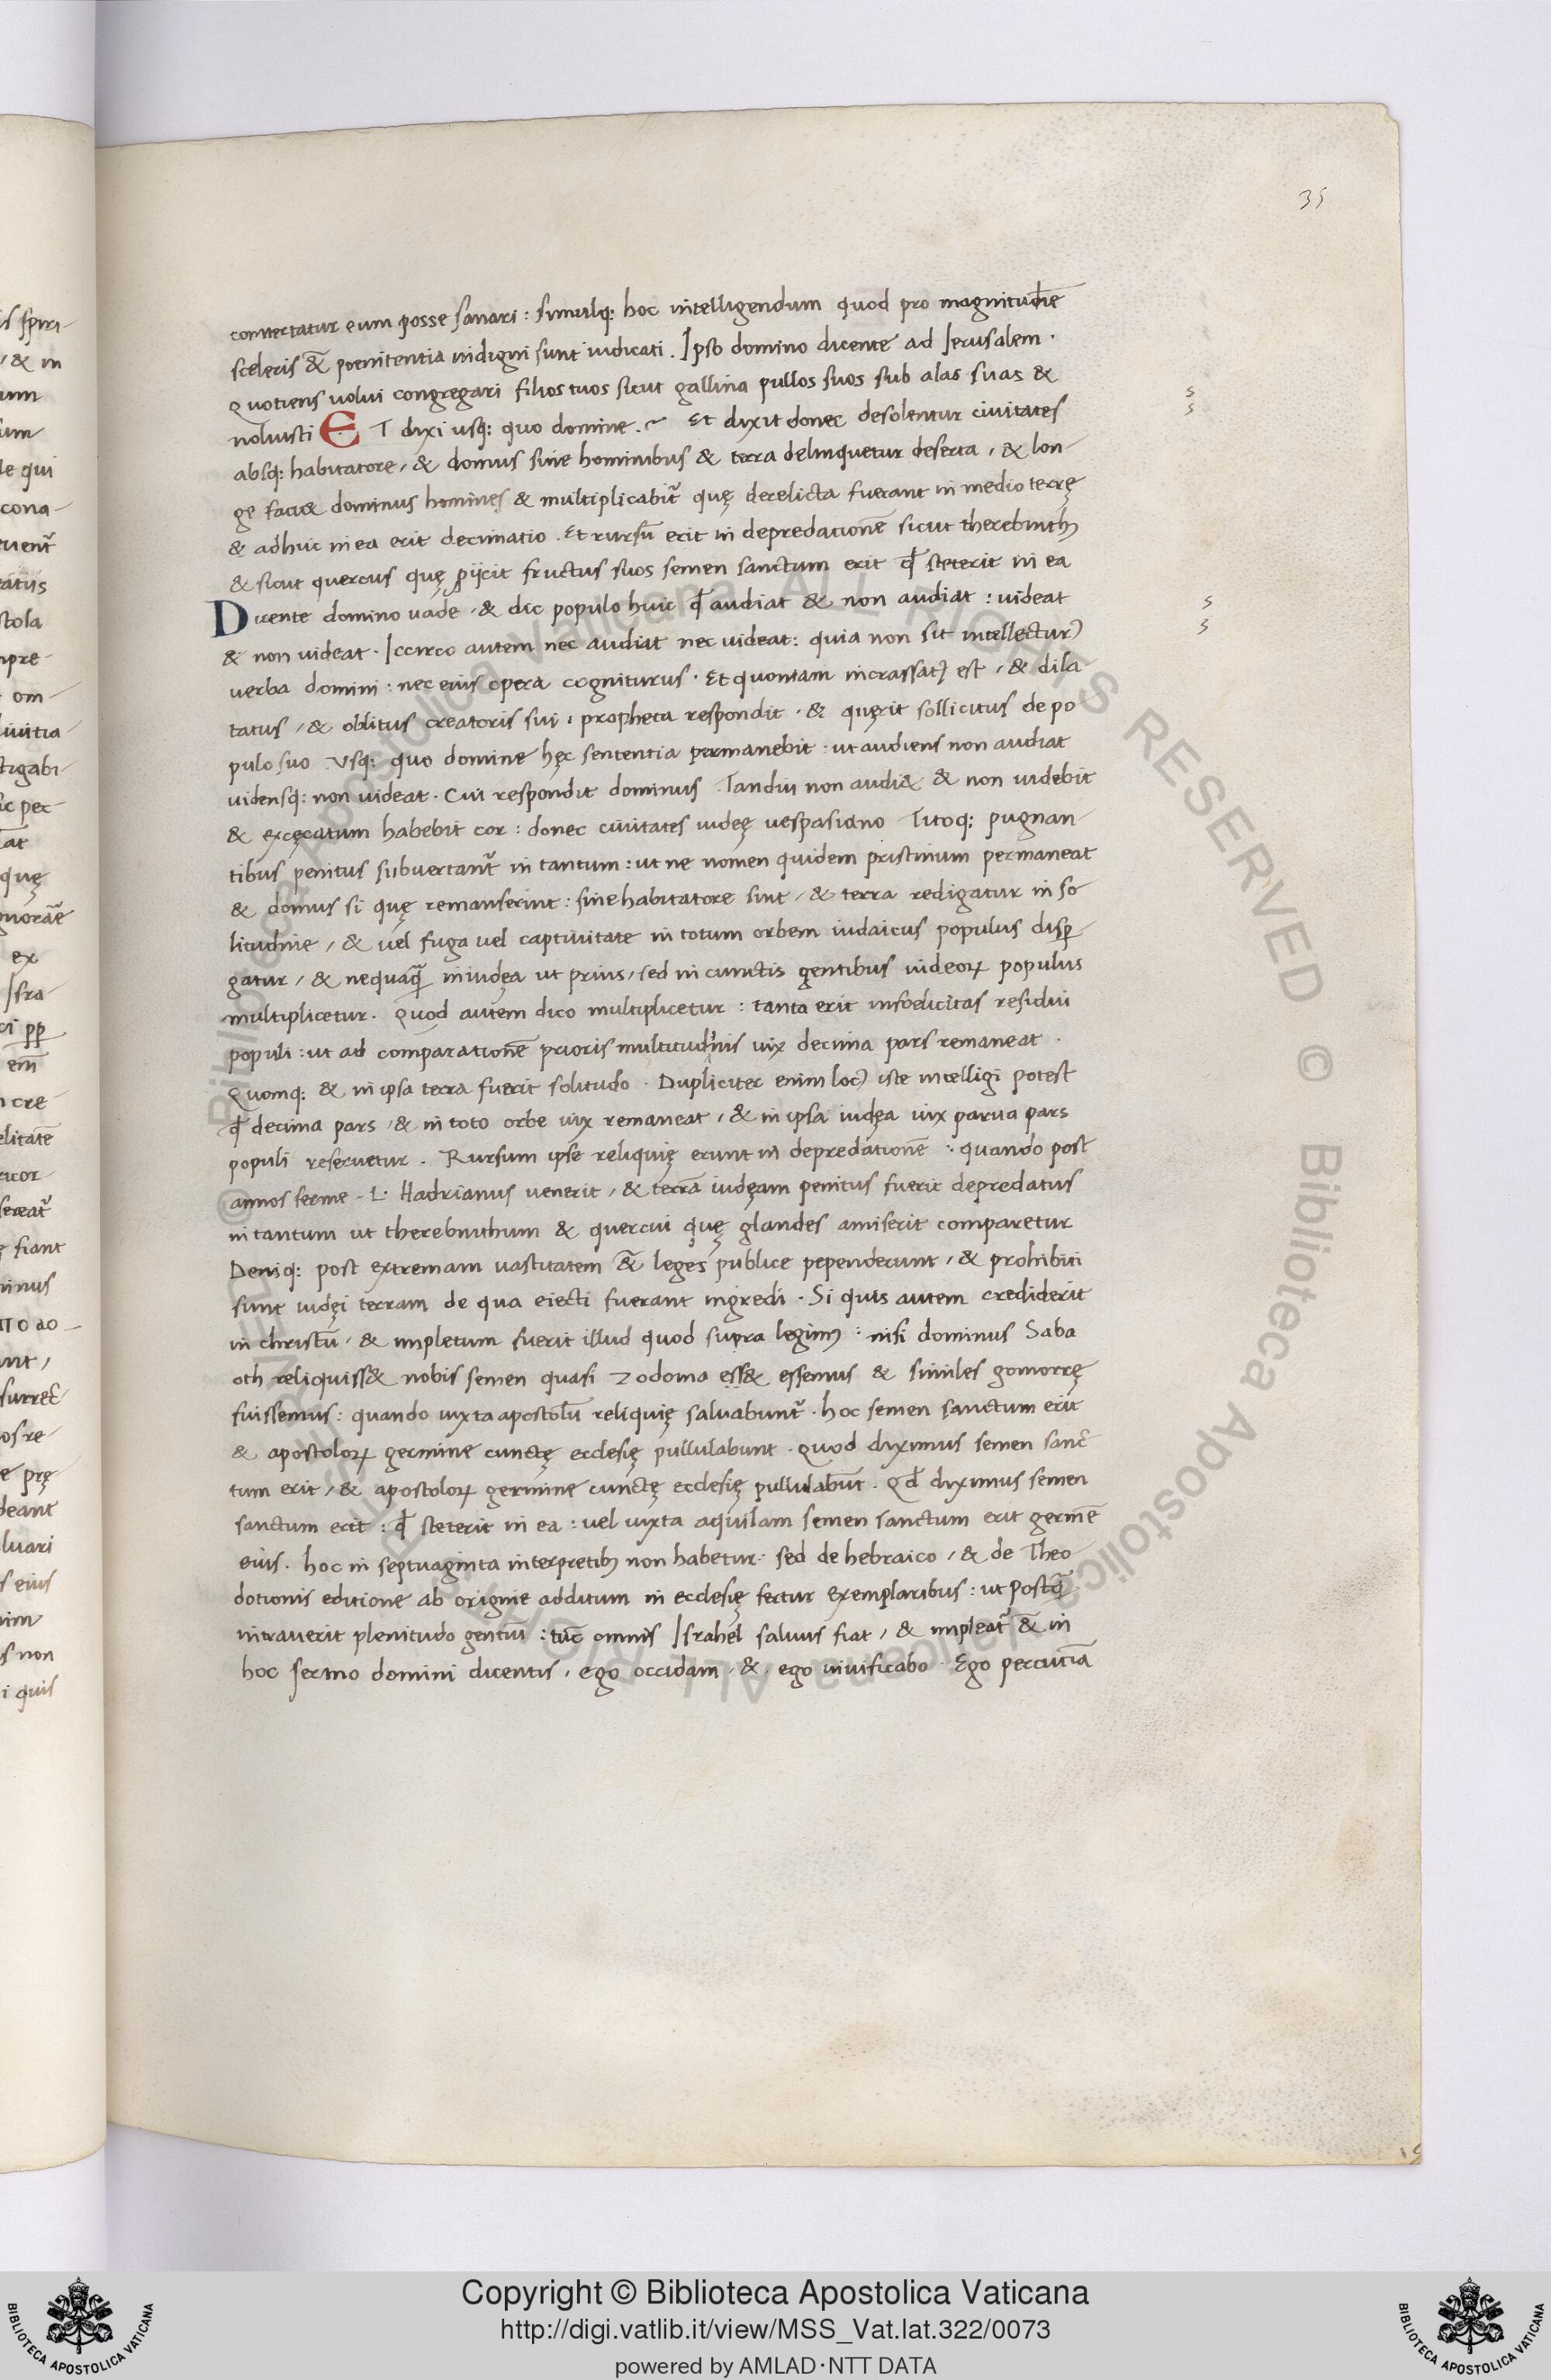 35
conuertatur eum posse sanari : simulq; hoc intelligendum quod pro magnitudīe
sceleris &̄ poenitentia indigni sunt iudicati . Ipso domino dicente ad Jerusalem .
Quotiens uolui congregari filios tuos sicut gallina pullos suos sub alas suas &
noluisti ET dixi usq; quo domine . ~ Et dixit donec desolentur ciuitates
absq; habitatore , & domus sine hominibus & terra delinquetur deserta , & lon-
ge faci& dominus homines & multiplicabit᷑ quę derelicta fuerant in medio terrę
& adhuc in ea erit decimatio . Et rursū erit in depredationē sicut therebinthꝯ
& sicut quercus quę ꝓijcit fructus suos semen sanctum erit qđ steterit in ea
Dicente domino uade , & dic populo huic qđ audiat & non audiat : uideat
& non uideat . Iccirco autem nec audiat nec uideat : quia non sit intellecturꝯ
uerba domini : nec eius opera cogniturus . Et quoniam incrassatꝯ est , & dila
tatus , & oblitus creatoris sui : propheta respondit . & quęrit sollicitus de po
pulo suo Vsq; quo domine hęc sententia permanebit : ut audiens non audiat
uidensq; non uideat . Cui respondit dominus Tandiu non audi& & non uidebit
& excęcatum habebit cor : donec ciuitates iudeę uespasiano Titoq; pugnan-
tibus penitus subuertant᷑ in tantum : ut ne nomen quidem pristinum permaneat
& domus si quę remanserint : sine habitatore sint , & terra redigatur in so
litudine , & uel fuga uel captiuitate in totum orbem iudaicus populus disꝑ-
gatur , & nequaq̄ in iudęa ut prius , sed in cunctis gentibus iudeoꝝ populus
multiplicetur . Quod autem dico multiplicetur : tanta erit infoelicitas residui
populi : ut ad comparationē prioris multitudinis uix decima pars remaneat .
Quomq; & in ipsa terra fuerit solitudo . Dupliciter enim locꝯ iste intelligi potest
qđ decima pars , & in toto orbe uix remaneat , & in ipsa iudęa uix parua pars
populi reseruetur . Rursum ipse reliquię erunt in depredationē : quando post
annos ferme . L . Hadrianus uenerit , & terrā iudęam penitus fuerit depredatus
in tantum ut therebinthum & quercui quę glandes amiserit comparetur
Deniq; post extremam uastitatem &̄ leges publice pependerunt , & prohibiti
sunt iudęi terram de qua eiecti fuerant ingredi . Si quis autem crediderit
in christū , & impletum fuerit illud quod supra legimꝯ : nisi dominus Saba
oth reliquiss& nobis semen quasi zodoma ess& essemus & similes gomorrę
fuissemus : quando iuxta apostolū reliquię saluabunt᷑ . hoc semen sanctum erit
& apostoloꝝ germine cunctę ecclesię pullulabunt . Quod diximus semen sanc̄
tum erit , & apostoloꝝ germine cunctę ecclesię pullulabūt . Qđ diximus semen
sanctum erit : qđ steterit in ea : uel iuxta aquilam semen sanctum erit germē
eius . hoc in septuaginta interpretibꝯ non habetur : sed de hebraico , & de Theo
dotionis editione ab origine additum in ecclesię fertur exemplaribus : ut postq̄
intrauerit plenitudo gentiū : tūc omnis Israhel saluus fiat , & impleat᷑ &̄ in
hoc sermo domini dicentis , ego occidam . & . ego uiuificabo . Ego percutiā
© Biblioteca Apostolica Vaticana ALL RIGHTS RESERVED
BIBLIOTECA APOSTOLICA VATICANA
Copyright © Biblioteca Apostolica Vaticana
http://digi.vatlib.it/view/MSS_Vat.lat.322/0073
powered by AMLAD·NTT DATA
BIBLIOTECA APOSTOLICA VATICANA